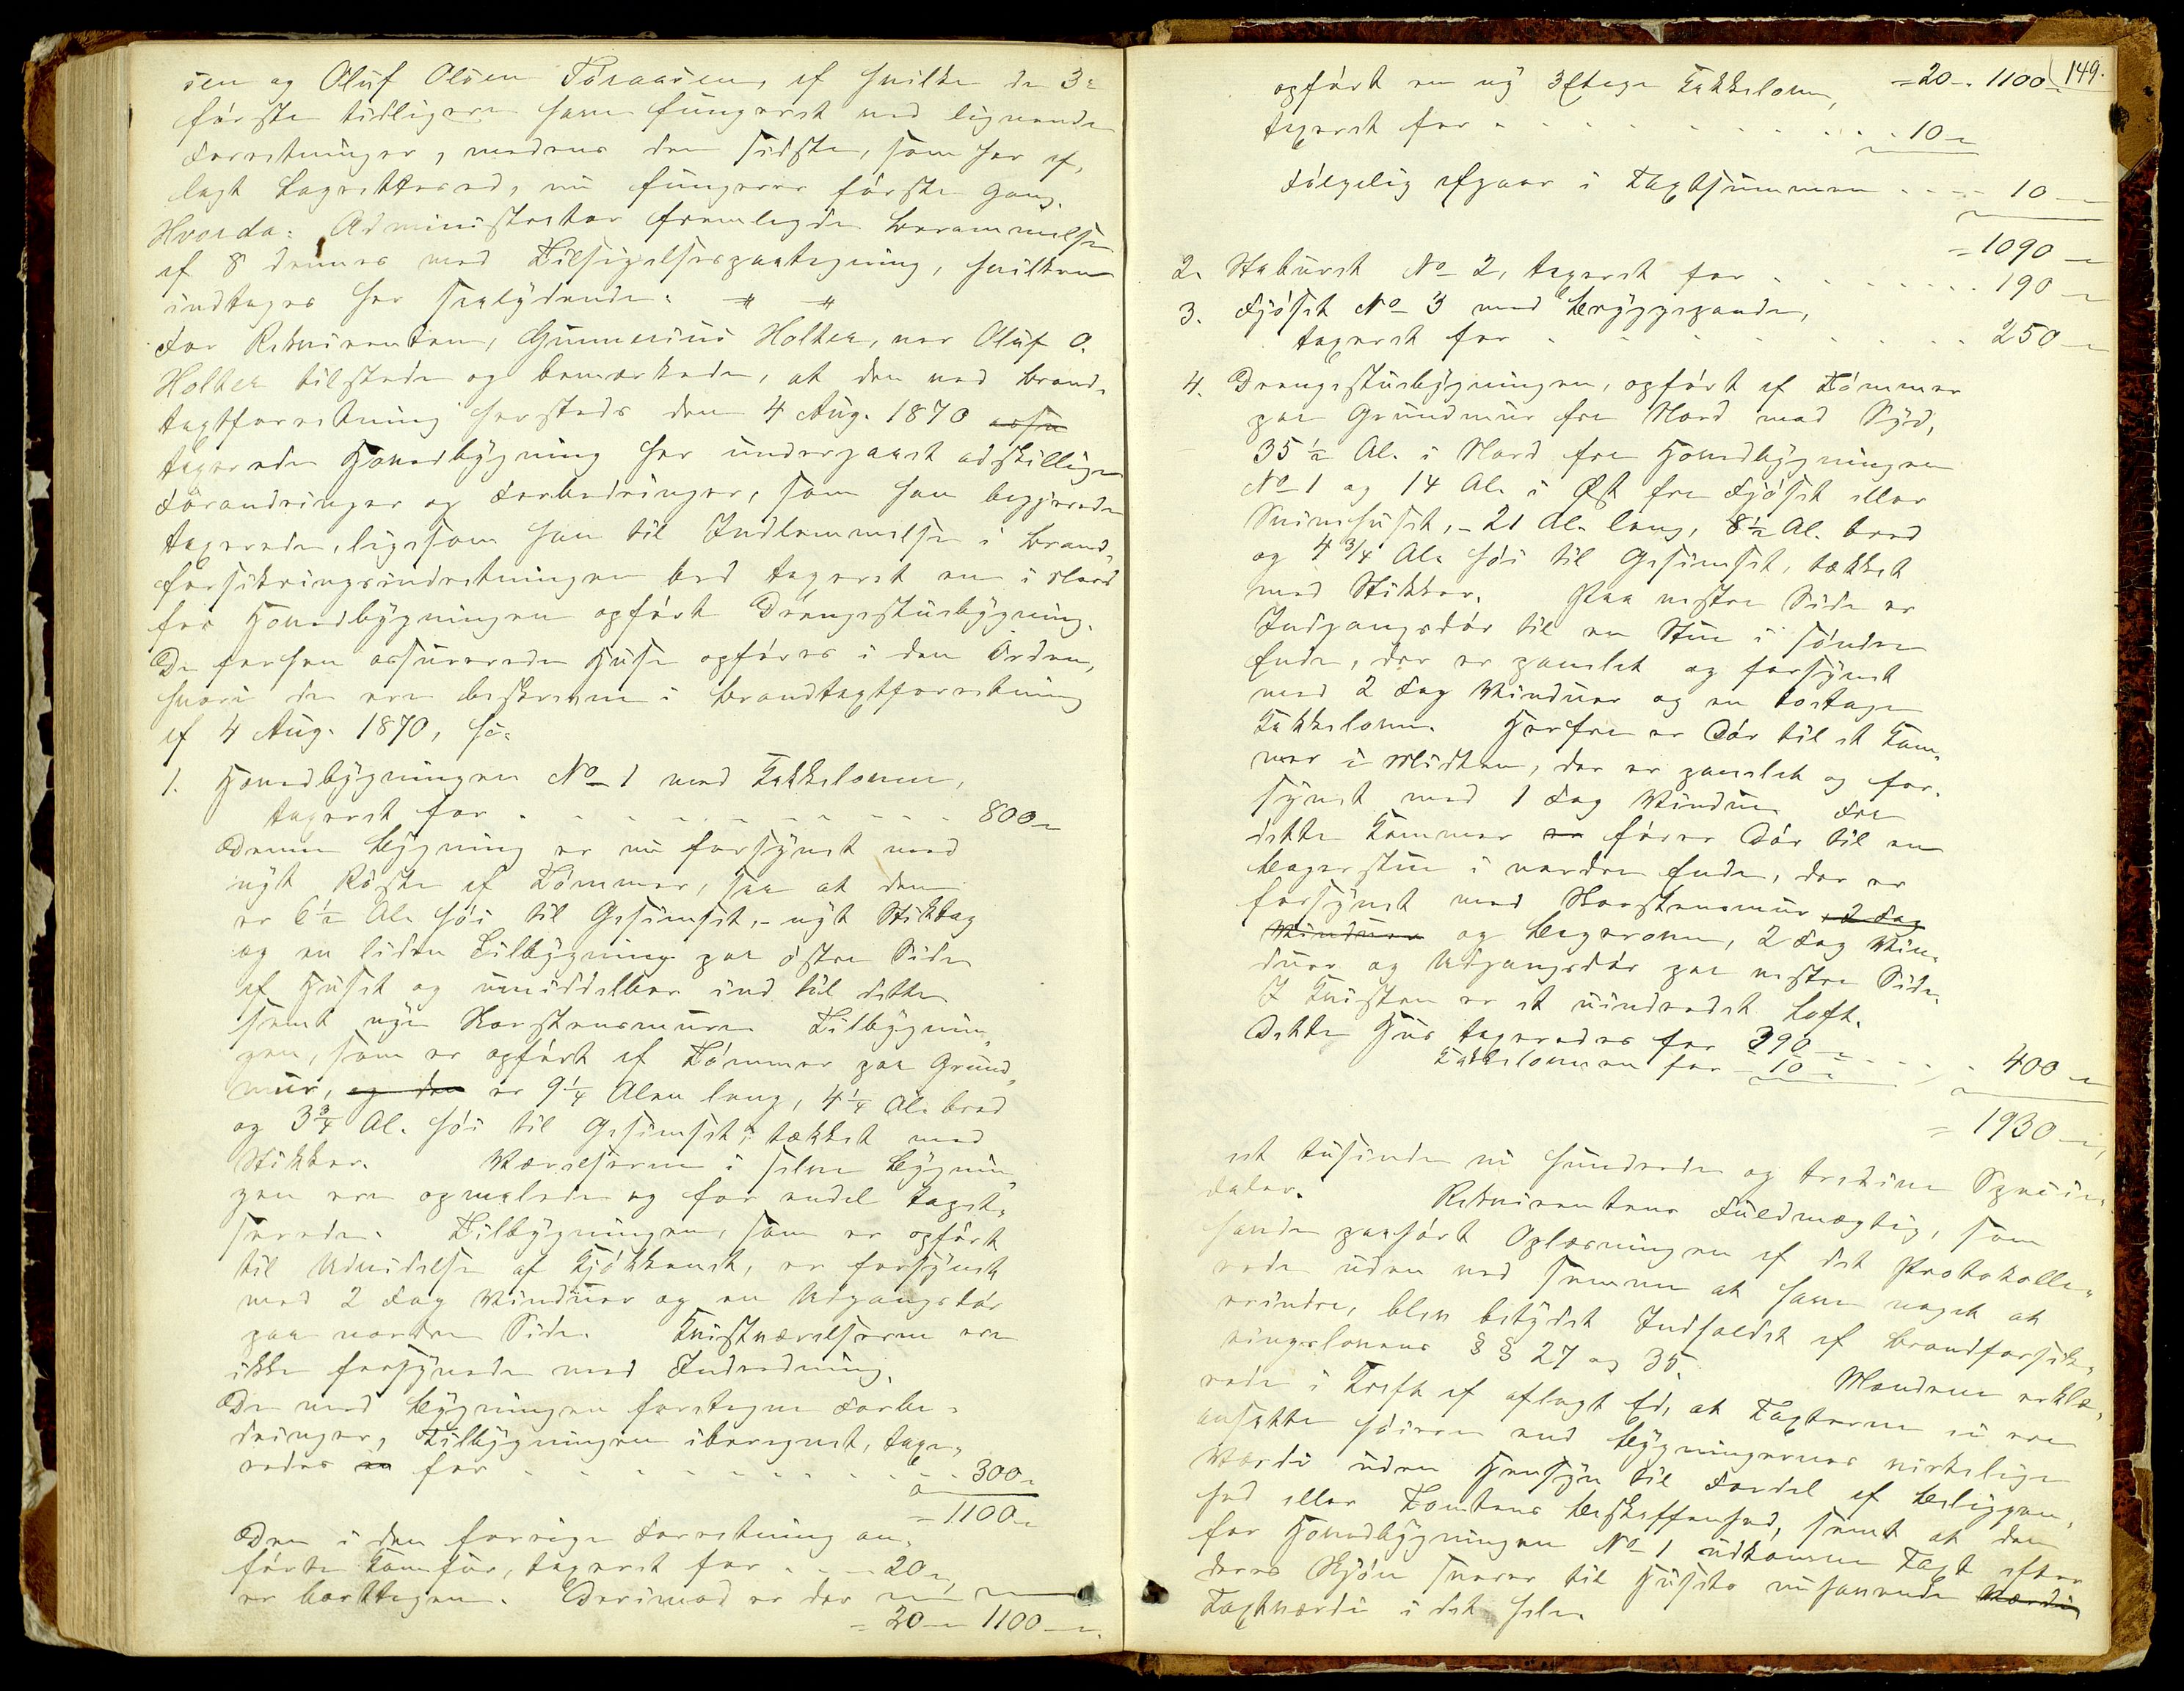 sen og Oluf Olsen Toraasen, af hvilke de 3:
første tidligere have fungeret ved lignende
Forretninger, medens den sidste, som har af-
lagt Lagretteeed, nu fungerer første Gang.
Hvorda: Administrator fremlagde Berammelse
af 8 dennes med Tilsigelsespaategning, hvilken
indtages her saalydende: # #
For Rekvirenten, Gunnerius Holter, var Oluf O.
Holter tilstede og bemærkede, at den ved Brand-
taxtforretning hersteds den 4 Aug. 1870
taxerede Hovedbygning har undergaaet adskillige
Forandringer og Forbedringer, som han begjerede
taxerede, ligesom han til Indlemmelse i Brand-
forsikringsindretningen bad taxeret en i Nord
for Hovedbygningen opført Drengestuebygning.
De forhen assurerede Huse opføres i den Orden,
hvori de ere beskrevne i Brandtaxtforretning
af 4 Aug. 1870, saa:
1. Hovedbygningen No 1 med Kakkelovne,
taxeret for . . . . . . . . . . 800 „
Denne Bygning er nu forsynet med
nyt Røste af Tømmer, saa at den
er 6½ Al. høi til Gesimset, - nyt Stiktag
og en liden Tilbygning paa østre Side
af Huset og umiddelbar ind til dette
samt nye Skorstensmure. Tilbygnin-
gen, som er opført af Tømmer paa Grund-
mur, og den er 9¼ Alen lang, 4¼ Al. bred
og 3¾ Al. høi til Gesimset, tækket med
Stikker. Værelserne i selve Bygnin-
gen ere opmalede og for endel tapet-
serede. Tilbygningen, som er opført
til Udvidelse af Kjøkkenet, er forsynet
med 2 Fag Vinduer og en Udgangsdør
paa nordre Side. Kvistværelserne ere
ikke forsynede med Indredning.
De med Bygningen foretagne Forbe-
dringer, Tilbygningen iberegnet, taxe-
redes for . . . . . . . . . . 300 „
= 1100 „
Den i den forrige Forretning an-
førte Komfur, taxeret for . . . 20 „
er borttagen. Derimod er der
= 20 „ 1100 „
149.
opført en ny 3Etages Kakkelovn, = 20 „ 1100 „
taxeret for . . . . . . . . . . 10 „
Følgelig afgaar i Taxtsummen . . . . 10 „
= 1090 „
2. Staburet No 2, taxeret for . . . . . . . 190 „
3. Fjøset No 3 med Bryggepande,
taxeret for . . . . . . . . . . 250 „
4. Drengestuebygningen, opført af Tømmer
paa Grundmur fra Nord mod Syd,
35½ Al. i Nord fra Hovedbygningen
No 1 og 14 Al. i Øst fra Fjøset eller
Svinehuset, - 21 Al. lang, 8½ Al. bred
og 4 3/4 Al. høi til Gesimset, tækket
med Stikker. Paa vestre Side er
Indgangsdør til en Stue i søndre
Ende, der er panelet og forsynet
med 2 Fag Vinduer og en toetages
Kakkelovn. Herfra er Dør til et Kam-
mer i Midten, der er panelet og for-
synet med 1 Fag Vindue Fra
dette Kammer er fører Dør til en
Bagerstue i nordre Ende, der er
forsynet med Skorstensmur, 2 Fag
Vinduer og Bagerovn, 2 Fag Vin-
duer og Udgangsdør paa vestre Side.
I Kvisten er et uindredet Loft.
Dette Hus taxeredes for 390 „
Kakkelovnen for - 10 „ . . . . . 400 „
= 1930 „
et tusinde ni hundrede og tredive Specie-
daler. Rekvirentens Fuldmægtig, som
havde paahørt Oplæsningen af det Protokolle-
rede uden ved samme at have noget at
erindre, blev betydet Indholdet af Brandforsik-
ringslovens § § 27 og 35. Mændene erklæ-
rede i Kraft af aflagt Ed, at Taxterne ei ere
ansatte høiere end Bygningernes virkelige
Værdi uden Hensyn til Fordel af Beliggen-
hed eller Tomtens Beskaffenhed, samt at den
for Hovedbygningen No 1 udkomne Taxt efter
deres Skjøn svarer til Husets nuhavende Værdi
Taxtværdi i det hele.